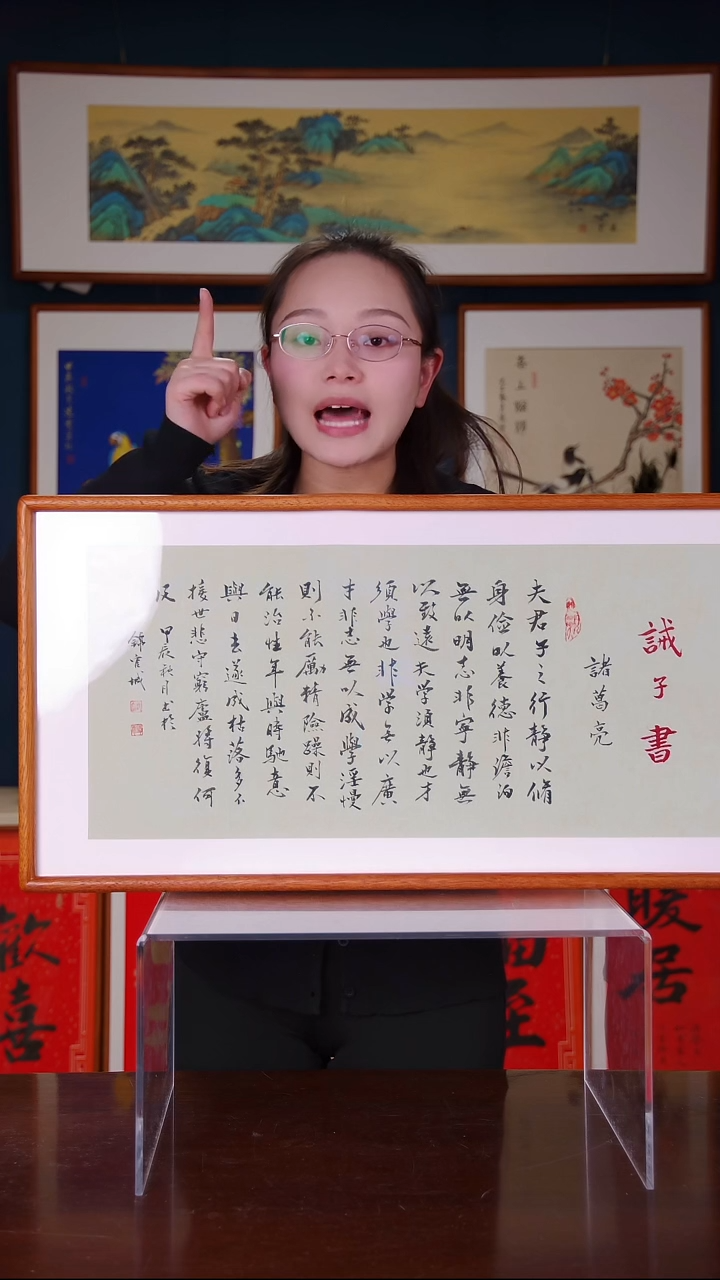 誡子書
諸葛亮
夫君子之行静以脩
身儉以養德非澹泊
無以明志非寧静無
以致遠夫学須静也才
須學也非学无以廣
才非志無以成學淫慢
則不能勵精險躁則不
能治性年與時馳意
與日去遂成枯落多不
接世悲守窮廬將復何
及 甲辰秋月书於
錦官城
歡喜
至
暖居